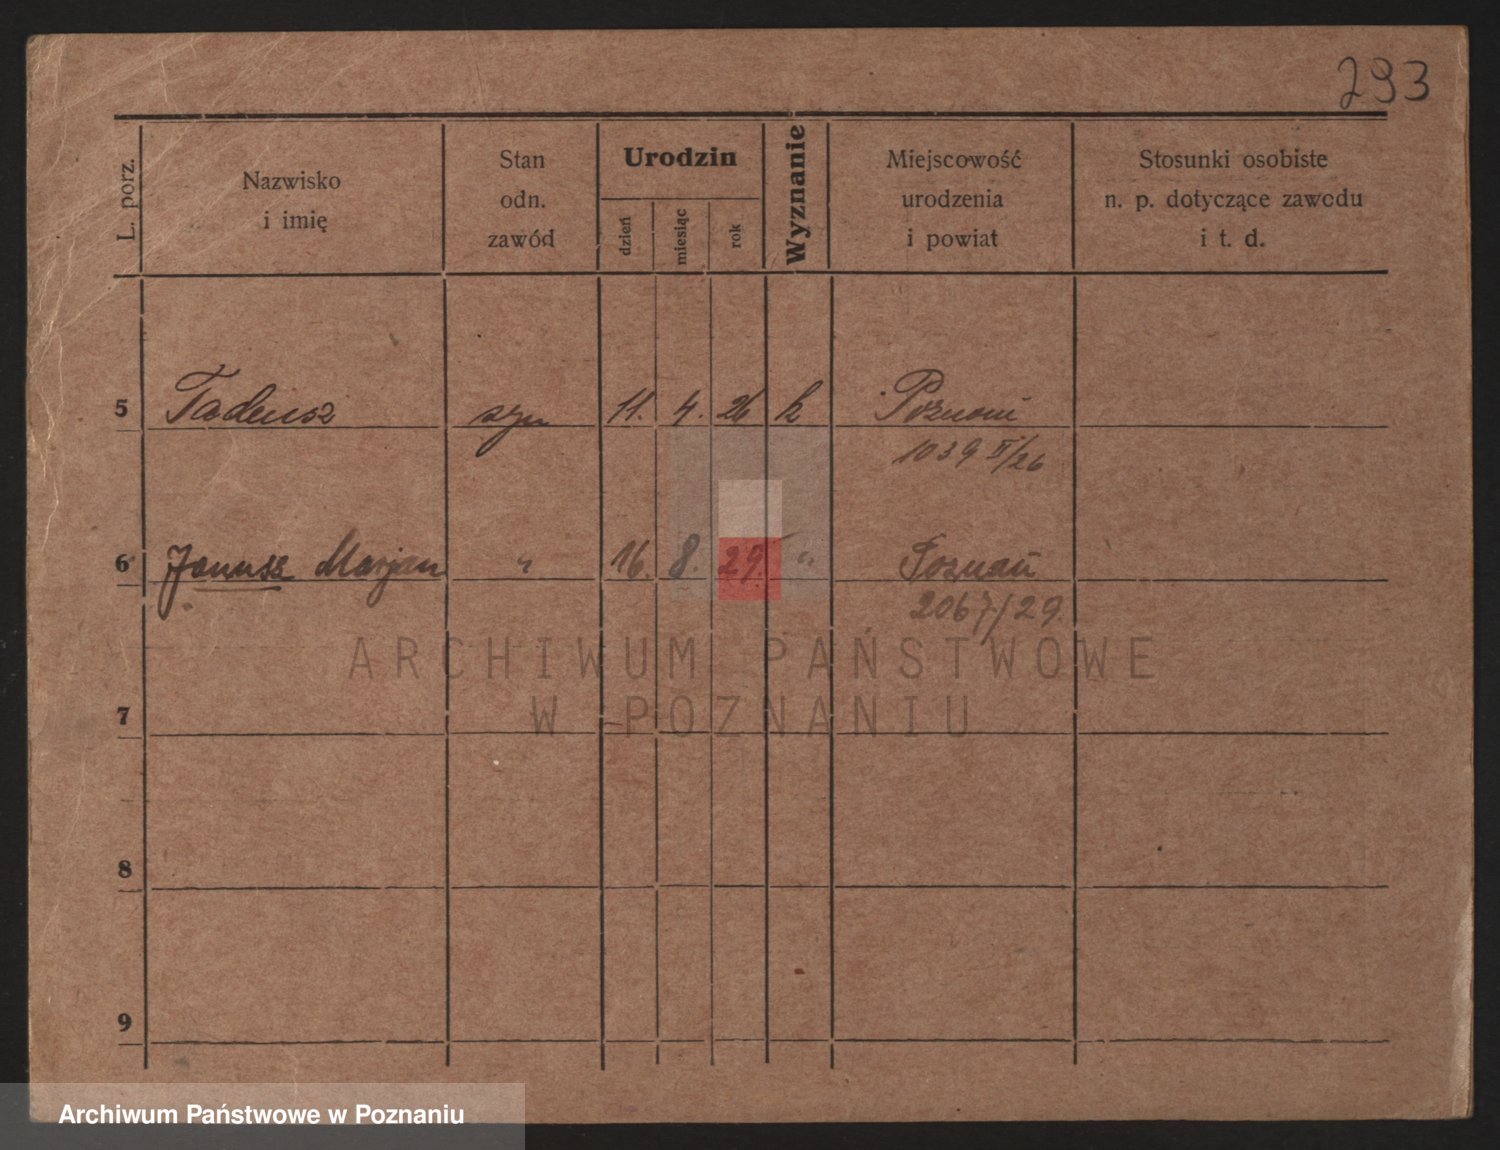 293
L. porz.
Nazwisko
i imię
Stan
odn.
zawód
Urodzin
dzień
miesiąc
rok
Wyznanie
Miejscowość
urodzenia
i powiat
Stosunki osobiste
n. p. dotyczące zawodu
i t. d.
5 Tadeusz syn 11. 4. 26 k Poznań
1039 II/26
6 Janusz Marjan " 16. 8. 29. " Poznań
2067/29.
ARCHIWUM PAŃSTWOWE
W POZNANIU
7
8
9
Archiwum Państwowe w Poznaniu